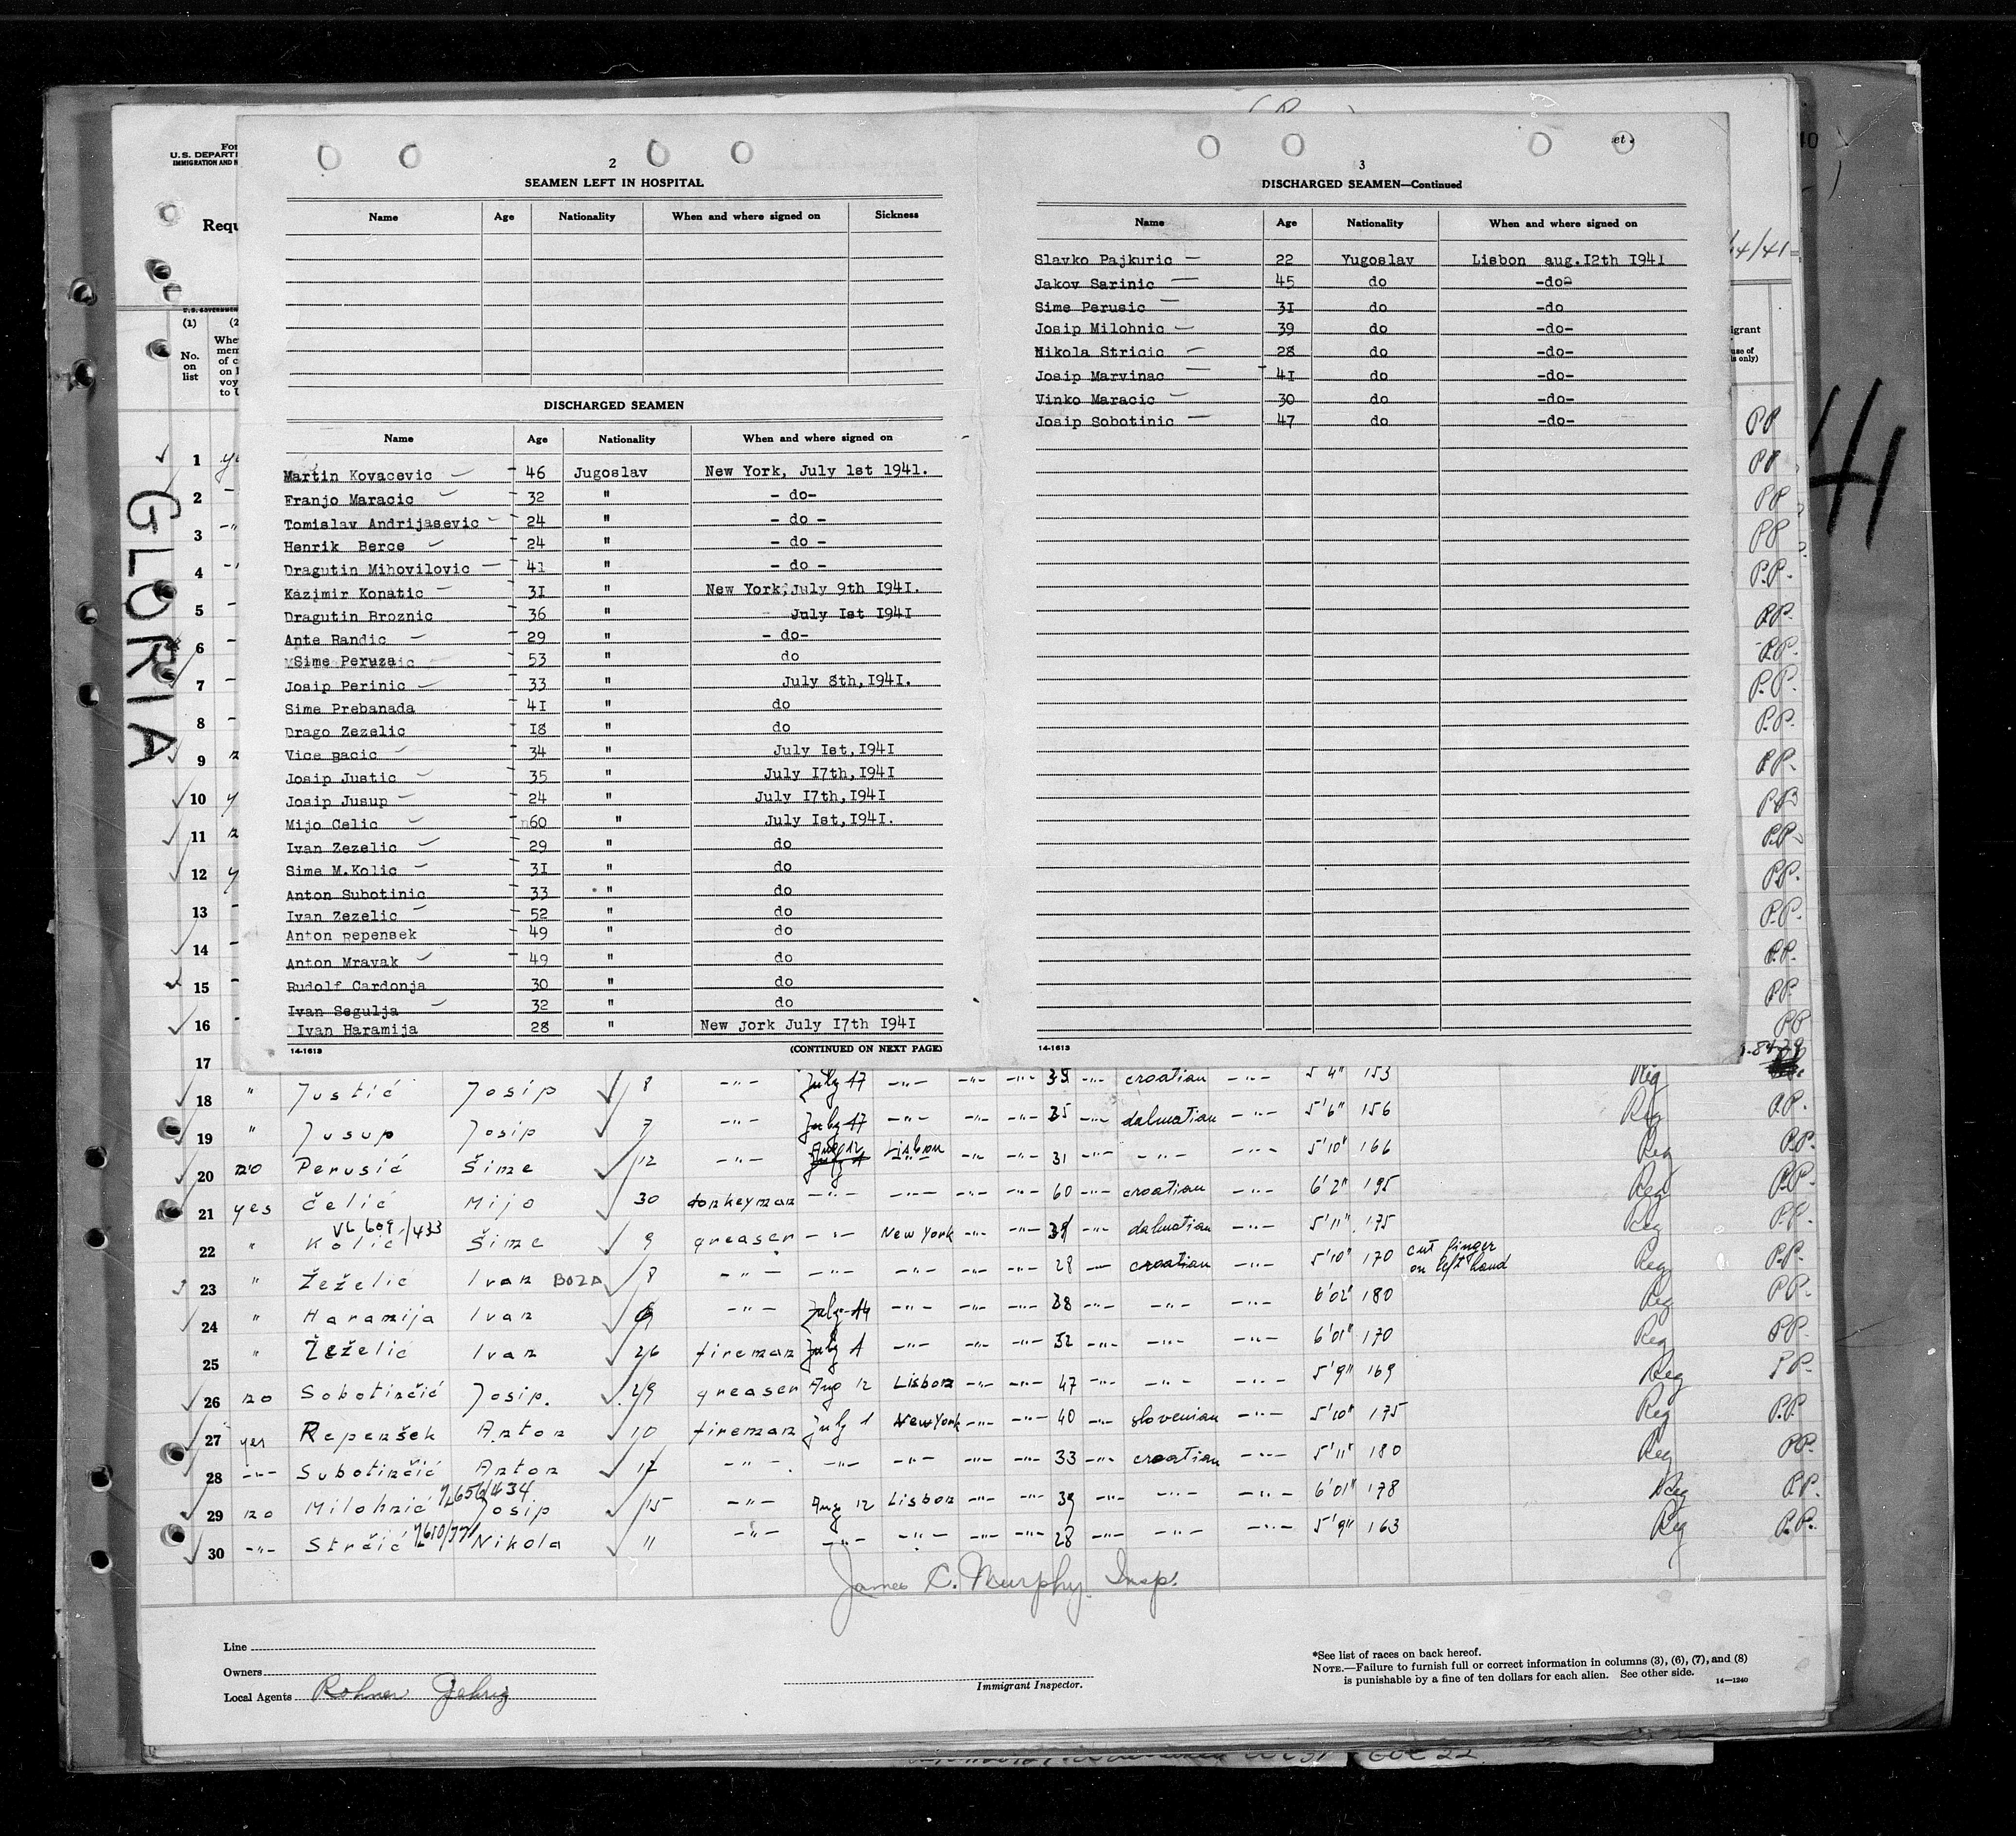 2
SEAMEN LEFT IN HOSPITAL
Name Age Nationality When and where signed on Sickness
DISCHARGED SEAMEN
Name Age Nationality When and where signed on
Martin Kovacevic 46 Jugoslav New York, July 1st 1941.
Franjo Maracic 32 " - do-
Tomislav Andrijasevic 24 " - do -
Henrik Berce 24 " - do -
Dragutin Mihovilovic 41 " - do -
Kazimir Konatic 31 " New York, July 9th I941.
Dragutin Broznic 36 " July Ist I941
Ante Randic 29 " - do-
Sime Peruza 53 " do
Josip Perinic 33 " July 8th,I941.
Sime Prebanada 4I " do
Drago Zezelic I8 " do
Vice Bacic 34 " July Ist,I941
Josip Justic 35 " July I7th,I941
Josip Jusup 24 " July I7th,I941
Mijo Celic 60 " July Ist,I941.
Ivan Zezelic 29 " do
Sime M.Kolic 3I " do
Anton Subotinic 33 " do
Ivan Zezelic 52 " do
Anton Repensek 49 " do
Anton Mravak 49 " do
Rudolf Cardonja 30 " do
Ivan Segulja 32 " do
Ivan Haramija 28 " New Jork July I7th I941
14-1613 (CONTINUED ON NEXT PAGE)
3
DISCHARGED SEAMEN—Continued
Name Age Nationality When and where signed on
Slavko Pajkuric 22 Yugoslav Lisbon aug.I2th I94I
Jakov Sarinic 45 do -do-
Sime Perusic 3I do -do
Josip Milohnic 39 do -do-
Nikola Stricic 28 do -do-
Josip Marvinac 4I do -do-
Vinko Maracic 30 do -do-
Josip Sobotinic 47 do -do-
14-1613
U.S. DEPARTM
IMMIGRATION AND N
Requ
(1)
No. on list
GLORIA
41
1
2
3
4
5
6
7
8
9
10
11
12
13
14
15
16
17
18 " Justić Josip 8 -"- July 17 -"- -"- -"- 35 -"- croatian -"- 5'4" 153 Reg
19 " Jusup Josip 7 -"- July 17 -"- -"- -"- 35 -"- dalmatian -"- 5'6" 156 Reg P.P.
20 no Perusić Šime 12 -"- Aug 12 Lisbon -"- -"- 31 -"- -"- -"- 5'10" 166 Reg P.P.
21 yes Čelić Mijo 30 donkeyman -"- -"- -"- -"- 60 -"- croatian -"- 6'2" 195 Reg P.P.
22 " Kolić Šime 9 greaser -"- New York -"- -"- 31 -"- dalmatian -"- 5'11" 175 Reg P.P.
23 " Žeželić Ivan BOZA 8 -"- -"- -"- -"- -"- 28 -"- croatian -"- 5'10" 170 cut finger on left hand Reg P.P.
24 " Haramija Ivan -"- -"- -"- -"- 38 -"- -"- -"- 6'02" 180 Reg P.P.
25 " Žeželić Ivan 26 fireman July 1 -"- -"- -"- 52 -"- -"- -"- 6'01" 170 Reg P.P.
26 no Sobotinčić Josip. 29 greaser Aug 12 Lisbon -"- -"- 47 -"- -"- -"- 5'9" 169 Reg P.P.
27 yes Repenšek Anton 10 fireman July 1 New York -"- -"- 40 -"- slovenian -"- 5'10" 175 Reg P.P.
28 -"- Subotinčić Anton 17 -"- -"- -"- -"- -"- 33 -"- croatian -"- 5'11" 180 Reg P.P.
29 no Milohnić Josip 15 -"- Aug 12 Lisbon -"- -"- 39 -"- -"- -"- 6'01" 178 Reg P.P.
30 -"- Strčić Nikola 11 -"- -"- -"- -"- -"- 28 -"- -"- -"- 5'9" 163 Reg P.P.
James C. Murphy. Insp.
Line
Owners
Local Agents Rohner Gehrig
Immigrant Inspector.
*See list of races on back hereof.
NOTE.—Failure to furnish full or correct information in columns (3), (6), (7), and (8)
is punishable by a fine of ten dollars for each alien. See other side. 14—1240